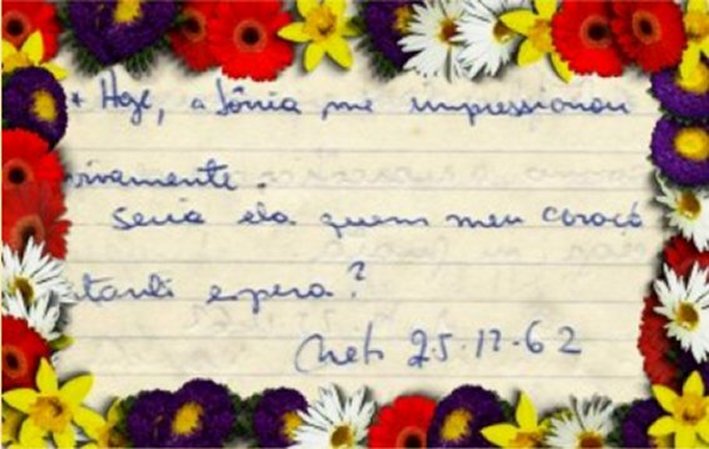 * Hoje, a Sônia me impressionou
vivamente.
Seria ela quem meu coraçõ
tanto espera?
Neto 25.12.62